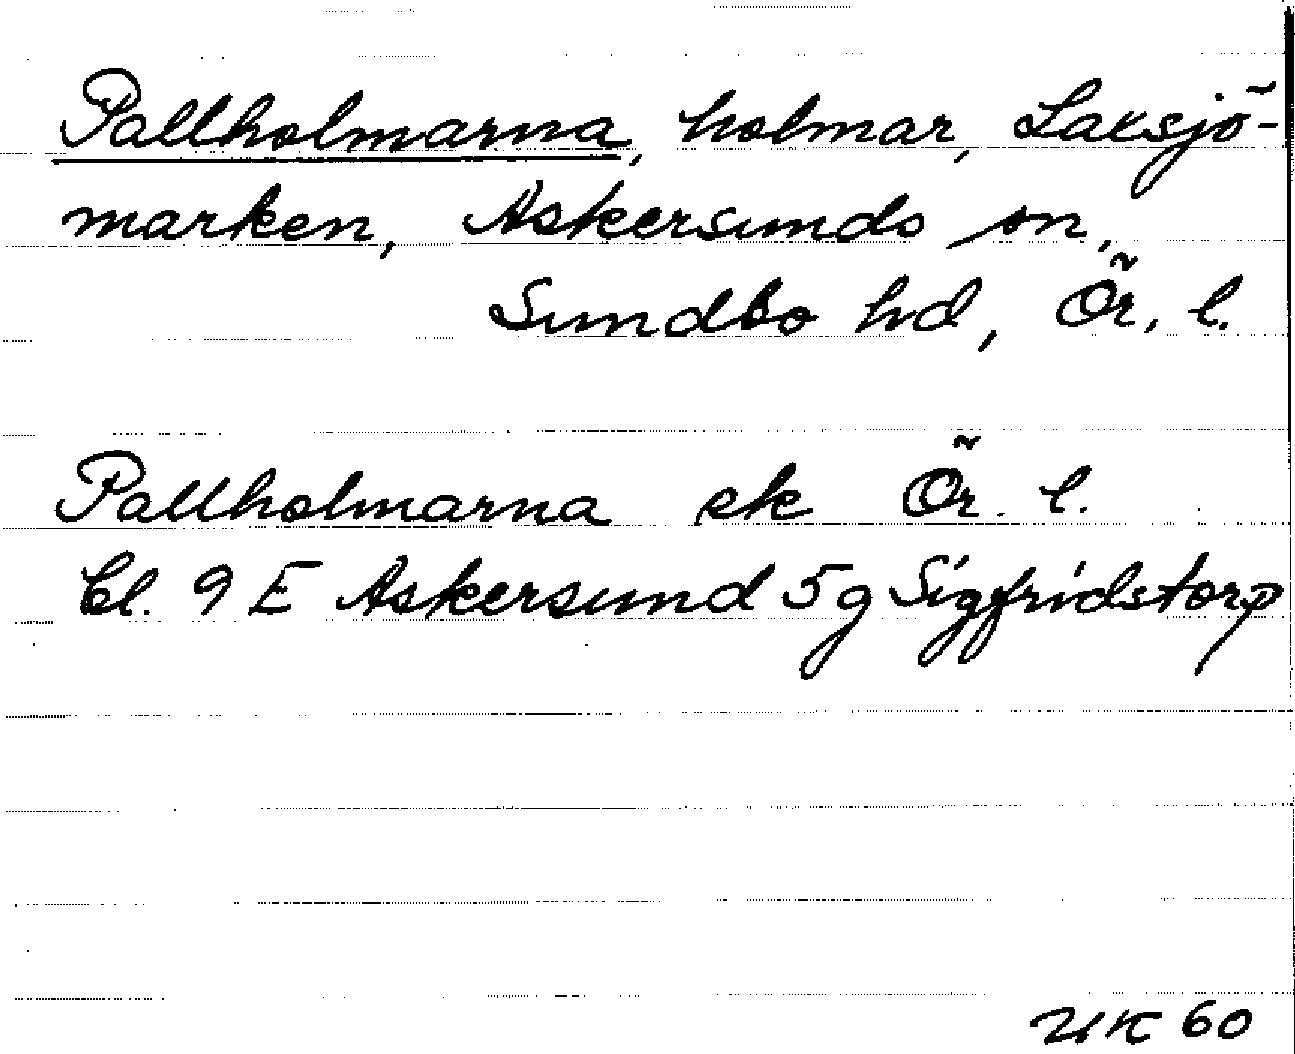 Pallholmarna, holmar, Laxsjö-
marken, Askersunds sn,
Sundbo hd, Ör. l.
Pallholmarna ek Ör. l.
bl. 9 E Askersund 5 g Sigfridstorp
UK 60